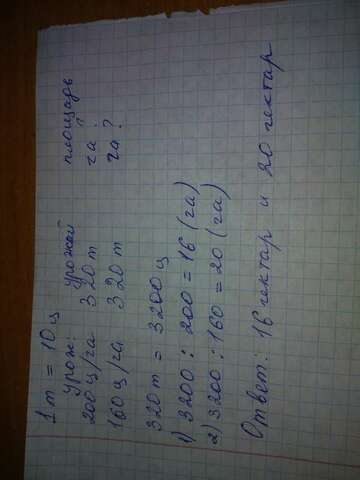 1 т = 10 ц
Урож. урожай площадь
200 ц/га 320 т га ?
160 ц/га 320 т га ?
320 т = 3200 ц
1) 3200 : 200 = 16 (га)
2) 3200 : 160 = 20 (га)
Ответ: 16 гектар и 20 гектар